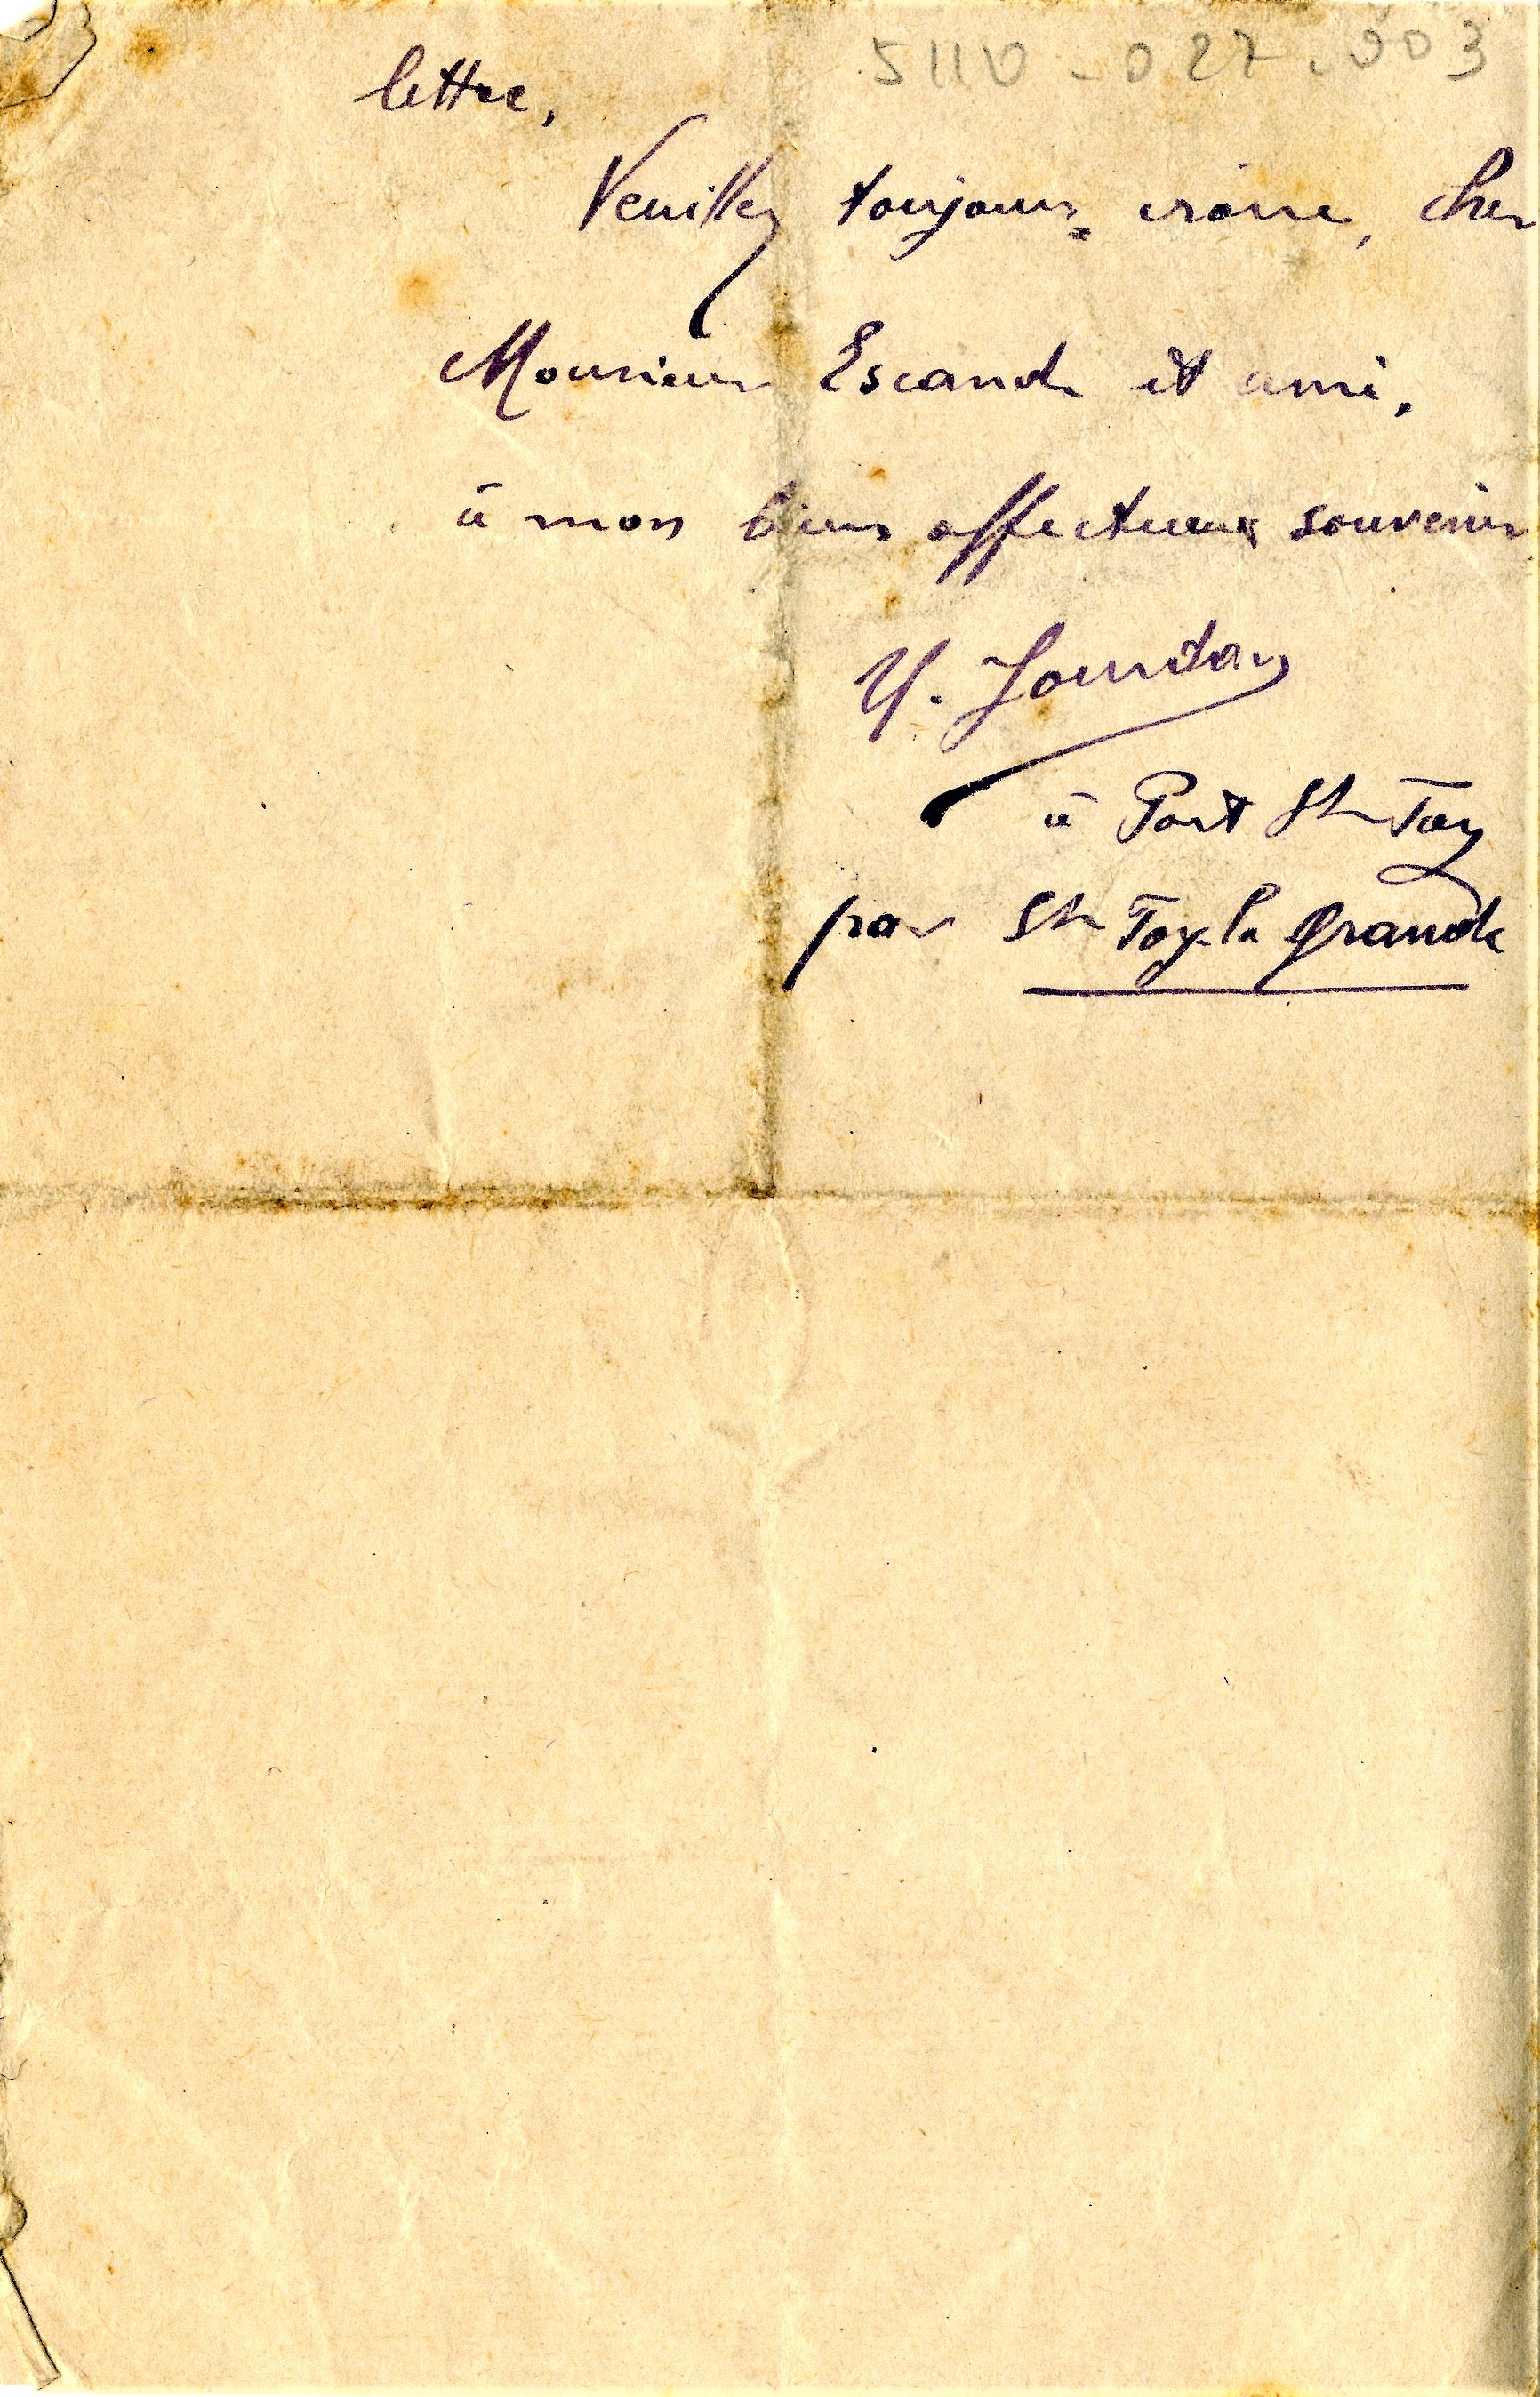 5110-027.003
lettre,
Veuillez toujours croire, cher
Monsieur Escande et ami,
à mon bien affectueux souvenir
Y. Jourdan
à Port Ste Foy
par Ste Foy-la Grande